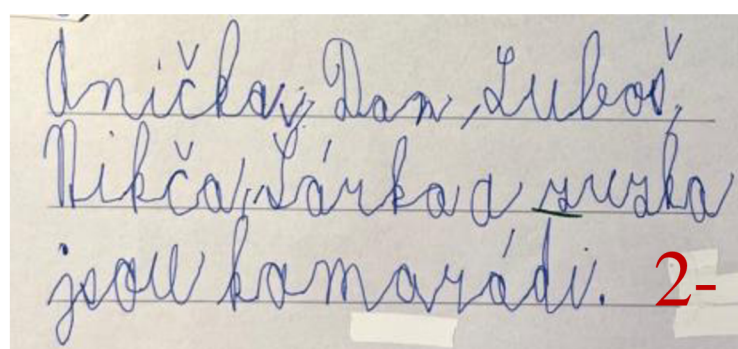 Anička, Dan, Luboš,
Nikča, Šárka a zuzka
jsou kamarádi. 2-